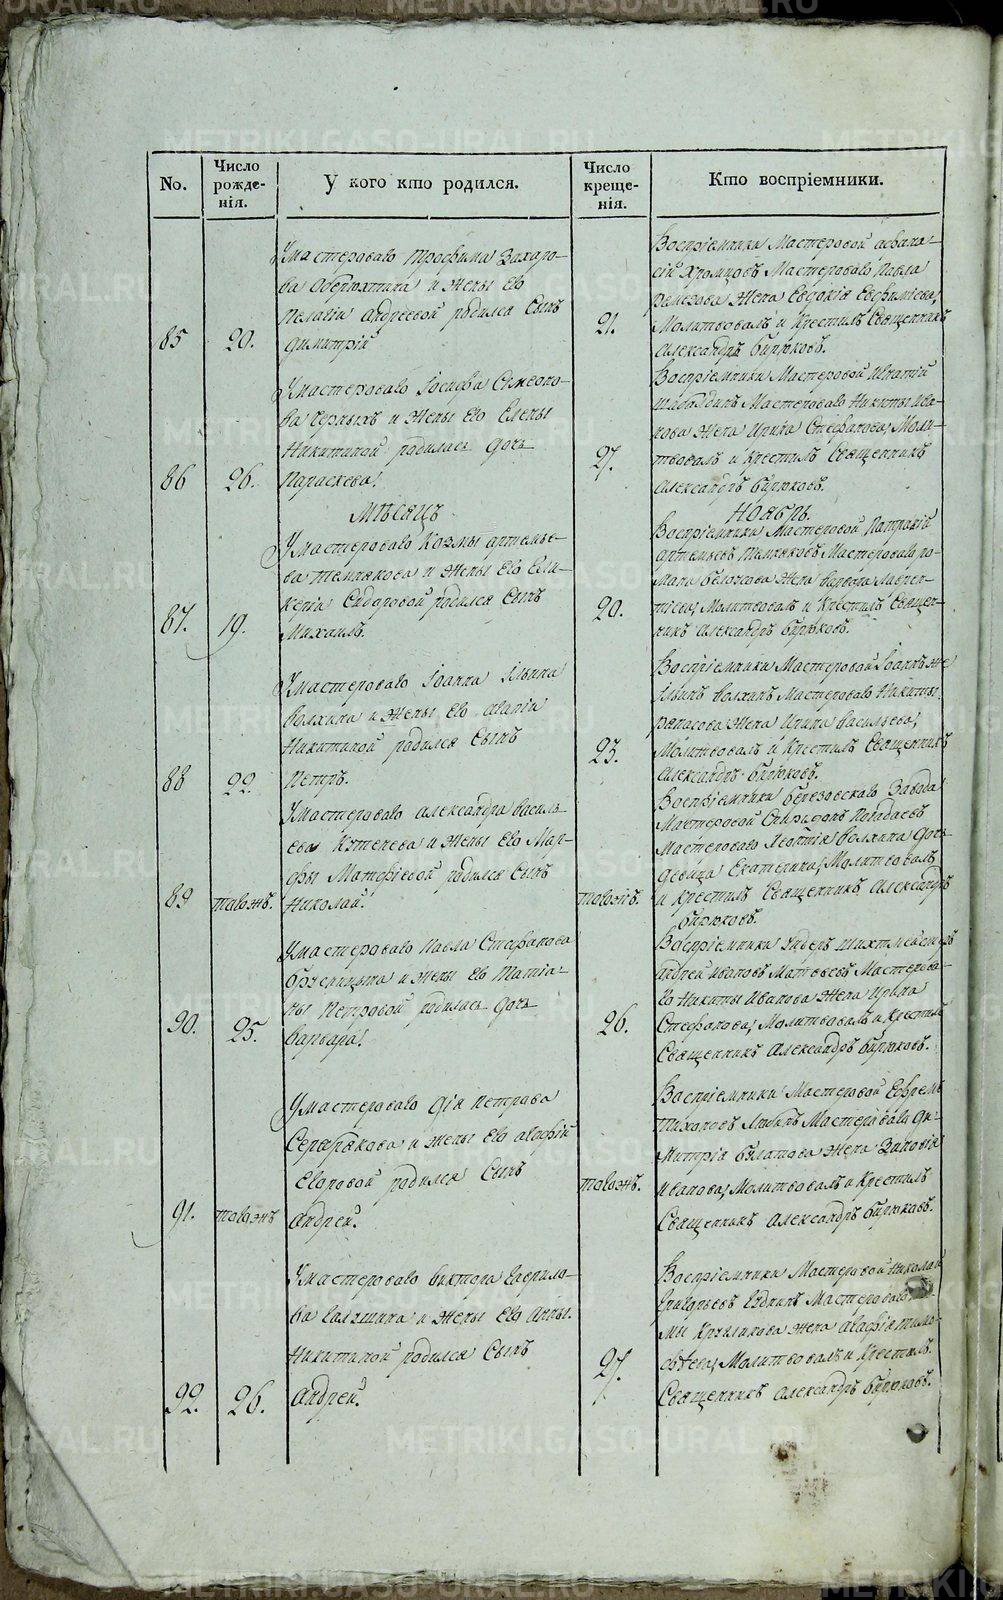 No.
Число рожде-нія.
У кого кто родился.
Число креще-нія.
Кто воспріемники.
85
20.
У мастероваго Трофима Захаро-
ва Обрюхтина и жены Его
Пелагіи Андреевой родился Сынъ
Димитрій
21.
Воспріемники Мастеровой Афана-
сій Хромцовъ Мастероваго Павла
жена Евдокія Евфиміева,
Молитвовалъ и Крестилъ Священникъ
Александръ Бирюковъ.
86
26.
У мастероваго Іосифа Симеоно-
ва Черныхъ и жены Его Елены
Никитиной родилась дочь
Параскева.
27.
Воспріемники Мастеровой Игнатій
Мастероваго Никиты Ива-
нова жена Ирина Стефанова, Моли-
твовалъ и Крестилъ Священникъ
Александръ Бирюковъ.
Мѣсяцъ
Ноябрь.
87.
19.
У мастероваго Козмы Артемье-
ва Темнякова и жены Его Гли-
керіи Сидоровой родился Сынъ
Михаилъ.
20.
Воспріемники Мастеровой Патракій
Артемьевъ Мастероваго Ро-
мана жена Варвара Лаврен-
тіева, Молитвовалъ и Крестилъ Священ-
никъ Александръ Бирюковъ.
88
22.
У мастероваго Іоанна Ильина
Волхина и жены Его Агапіи
Никитиной родился Сынъ
Петръ.
23.
Воспріемники Мастеровой Іоаннъ же
Ильинъ Волхинъ Мастероваго Никиты
жена Ирина Васильева,
Молитвовалъ и Крестилъ Священникъ
Александръ Бирюковъ.
89
тогожъ.
У мастероваго Александра Василь-
ева Кутенева и жены Его Мар-
фы Матфіевой родился Сынъ
Николай.
тогожъ.
Воспріемники Березовскаго Завода
Мастеровой Спиридонъ Погадаевъ
Мастероваго Леонтія Волхина дочь
девица Екатерина, Молитвовалъ
и Крестилъ Священникъ Александръ
Бирюковъ.
90.
25.
У мастероваго Павла Стефанова
и жены Его Татіа-
ны Петровой родилась дочь
Варвара.
26.
Воспріемники Ундеръ шихтмейстеръ
Андрей Ивановъ Матвеевъ Мастерова-
го Никиты Иванова жена Ирина
Стефанова, Молитвовалъ и Крестилъ
Священникъ Александръ Бирюковъ.
91.
тогожъ
У мастероваго Дія Петрова
Серебрякова и жены Его Агафіи
Егоровой родился Сынъ
Андрей.
тогожъ.
Воспріемники Мастеровой Ефремъ
Тихоновъ Мастероваго Ди-
митрія Булатова жена Зиновія
Иванова, Молитвовалъ и Крестилъ
Священникъ Александръ Бирюковъ.
92.
26.
У мастероваго Виктора Гаврило-
ва Галышина и жены Его Анны
Никитиной родился Сынъ
Андрей.
27.
Воспріемники Мастеровой Николай
Григорьевъ Мастероваго
жена Агафія Тимо-
феева, Молитвовалъ и Крестилъ
Священникъ Александръ Бирюковъ.
METRIKI.GASO-URAL.RU